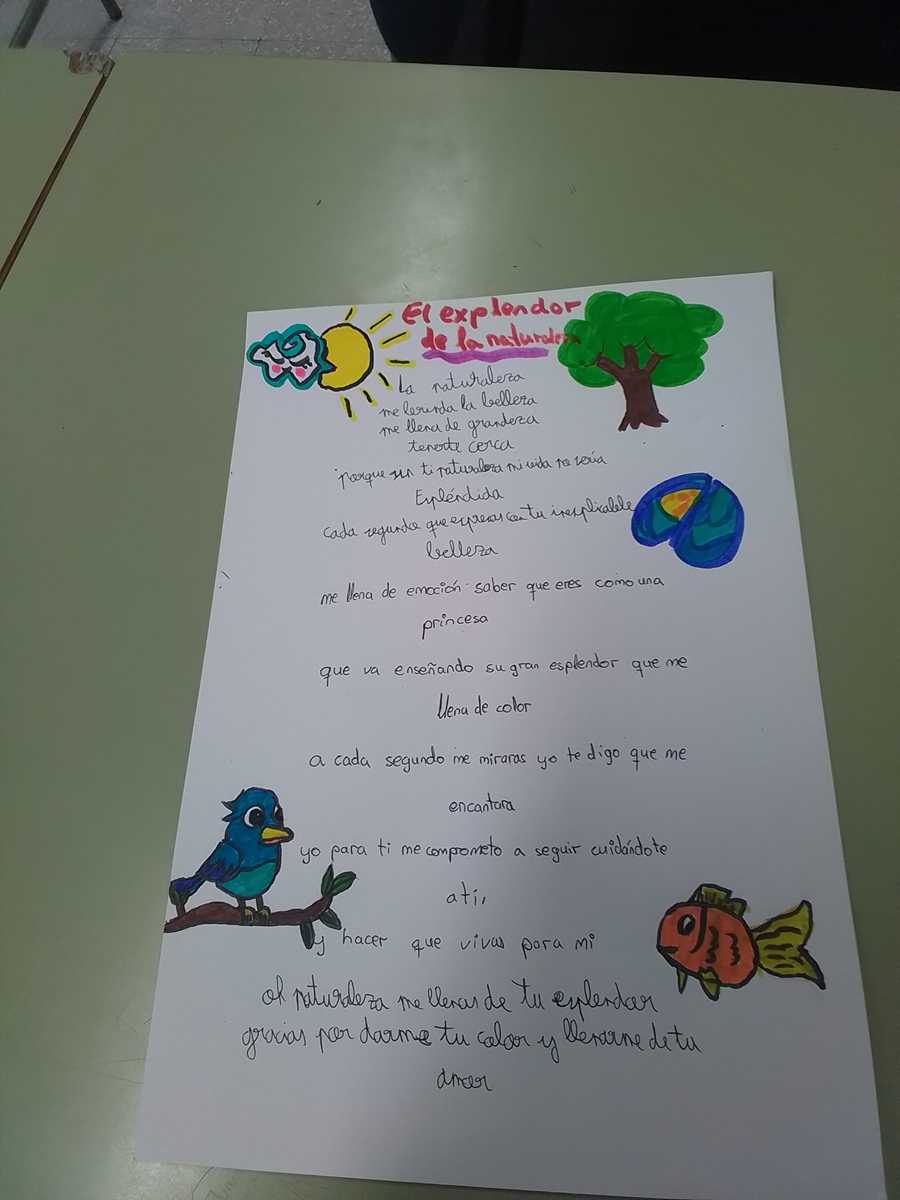 El explendor
de la naturaleza
La naturaleza
me brinda la belleza
me llena de grandeza
tenerte cerca
porque sin ti naturaleza mi vida no sería
Espléndida
cada segundo que expresas con tu inexplicable
belleza
me llena de emoción saber que eres como una
princesa
que va enseñando su gran esplendor que me
llena de color
a cada segundo me miraras yo te digo que me
encantara
yo para ti me comprometo a seguir cuidándote
a ti,
y hacer que vivas para mi
oh naturaleza me llenas de tu esplendor
gracias por darme tu color y llenarme de tu
amor